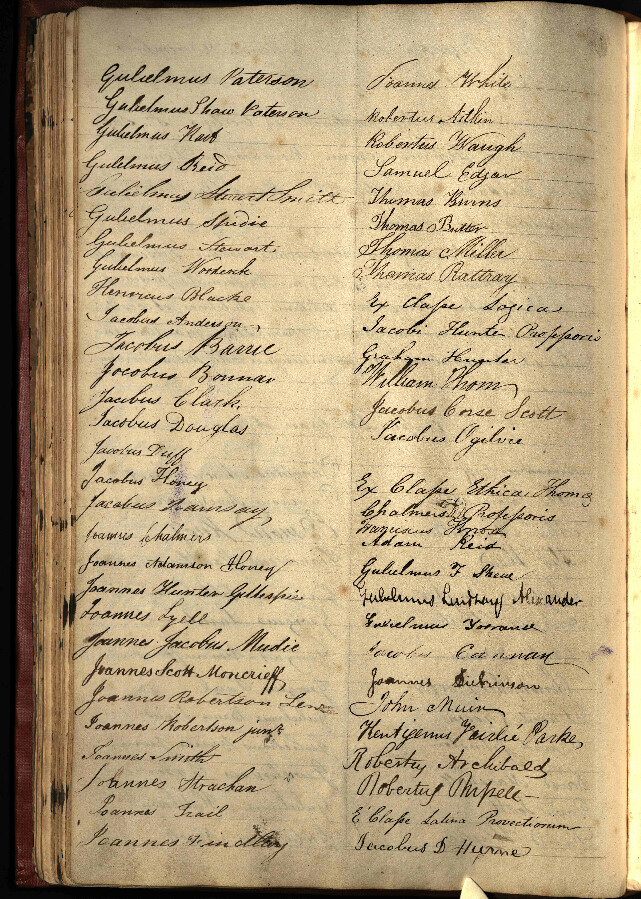 Gulielmus Paterson
Gulielmus Shaw Paterson
Gulielmus
Gulielmus Reid
Gulielmus Stuart Smith
Gulielmus Spidie
Gulielmus Stewart
Gulielmus
Henricus Blacke
Jacobus Anderson
Jacobus Barrie
Jacobus Bonnar
Jacobus Clark
Jacobus Douglas
Jacobus Duff
Jacobus Honey
Jacobus Ramsay
Joannes Chalmers
Joannes Adamson Honey
Joannes Hunter Gillespie
Joannes Lyell
Joannes Jacobus Mudie
Joannes Scott Moncrieff
Joannes Robertson
Joannes Robertson junr
Joannes Smith
Joannes Strachan
Joannes Trail
Joannes Findlay
Joannes White
Robertus Aitkin
Robertus Waugh
Samuel Edgar
Thomas Burns
Thomas Butter
Thomas Miller
Thomas Rattray
Ex Classe Logica
Jacobi Hunter Professoris
Graham Hunter
William Thom
Jacobus Corse Scott
Jacobus Ogilvie
Ex Classe Ethica Thomæ
Chalmers Professoris
Adam Reid
Gulielmus F Skene
Gulielmus Lindsay Alexander
Gulielmus Torrance
Jacobus
Joannes
John Muir
Kentigernus Fairlie Parke
Robertus Archibald
Robertus Russell
E Classe Latina Provectiorum
Jacobus D